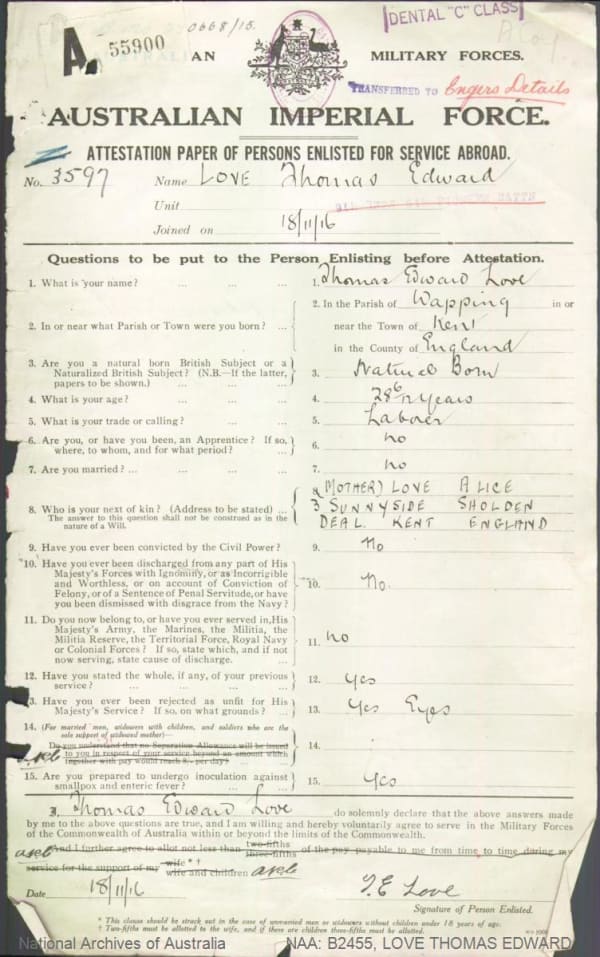 0668/15.
DENTAL "C" CLASS
A. 55900 AN MILITARY FORCES.
TRANSFERRED TO Engers Details
AUSTRALIAN IMPERIAL FORCE.
ATTESTATION PAPER OF PERSONS ENLISTED FOR SERVICE ABROAD.
No. 3597 Name LOVE Thomas Edward
Unit
Joined on 18/11/16
Questions to be put to the Person Enlisting before Attestation.
1. What is your name? ... ... ... 1. Thomas Edward Love
2. In or near what Parish or Town were you born? ... 2. In the Parish of Wapping in or
near the Town of Kent
in the County of England
3. Are you a natural born British Subject or a
Naturalized British Subject? (N.B.—If the latter, 3. Natural Born
papers to be shown.) ... ... ...
4. What is your age? ... ... ... 4. 28 6/12 years
5. What is your trade or calling? ... ... 5. Laborer
6. Are you, or have you been, an Apprentice? If so,
where, to whom, and for what period? ... ... 6. no
7. Are you married? ... ... ... ... 7. no
8. Who is your next of kin? (Address to be stated) ... 8. (MOTHER) LOVE ALICE
The answer to this question shall not be construed as in the 3 SUNNYSIDE SHOLDEN
nature of a Will. DEAL. KENT ENGLAND
9. Have you ever been convicted by the Civil Power? 9. no
10. Have you ever been discharged from any part of His
Majesty's Forces with Ignominy, or as Incorrigible
and Worthless, or on account of Conviction of 10. No.
Felony, or of a Sentence of Penal Servitude, or have
you been dismissed with disgrace from the Navy?
11. Do you now belong to, or have you ever served in, His
Majesty's Army, the Marines, the Militia, the
Militia Reserve, the Territorial Force, Royal Navy 11. no
or Colonial Forces? If so, state which, and if not
now serving, state cause of discharge. ...
12. Have you stated the whole, if any, of your previous
service? ... ... ... ... 12. yes
13. Have you ever been rejected as unfit for His
Majesty's Service? If so, on what grounds? ... 13. Yes Eyes
14. (For married men, widowers with children, and soldiers who are the
sole support of widowed mother)—
Do you understand that no Separation Allowance will be issued 14.
to you in respect of your service beyond an amount which
together with pay would reach 8/- per day?
15. Are you prepared to undergo inoculation against
smallpox and enteric fever? ... ... 15. Yes
I, Thomas Edward Love do solemnly declare that the above answers made
by me to the above questions are true, and I am willing and hereby voluntarily agree to serve in the Military Forces
of the Commonwealth of Australia within or beyond the limits of the Commonwealth.
And I further agree to allot not less than two-fifths three-fifths of the pay payable to me from time to time during my
service for the support of my wife * † wife and children
Date 18/11/16 T.E Love
Signature of Person Enlisted.
* This clause should be struck out in the case of unmarried men or widowers without children under 18 years of age.
† Two-fifths must be allotted to the wife, and if there are children three-fifths must be allotted.
National Archives of Australia NAA: B2455, LOVE THOMAS EDWARD